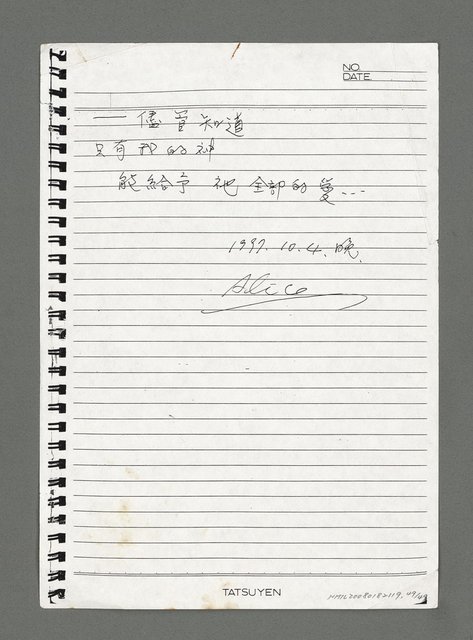 NO.
DATE
— 儘管知道
只有我的神
能給予 祂 全部的愛...
1997. 10. 4. 晚.
Alice
TATSUYEN
NMTL20080182119. 49/49